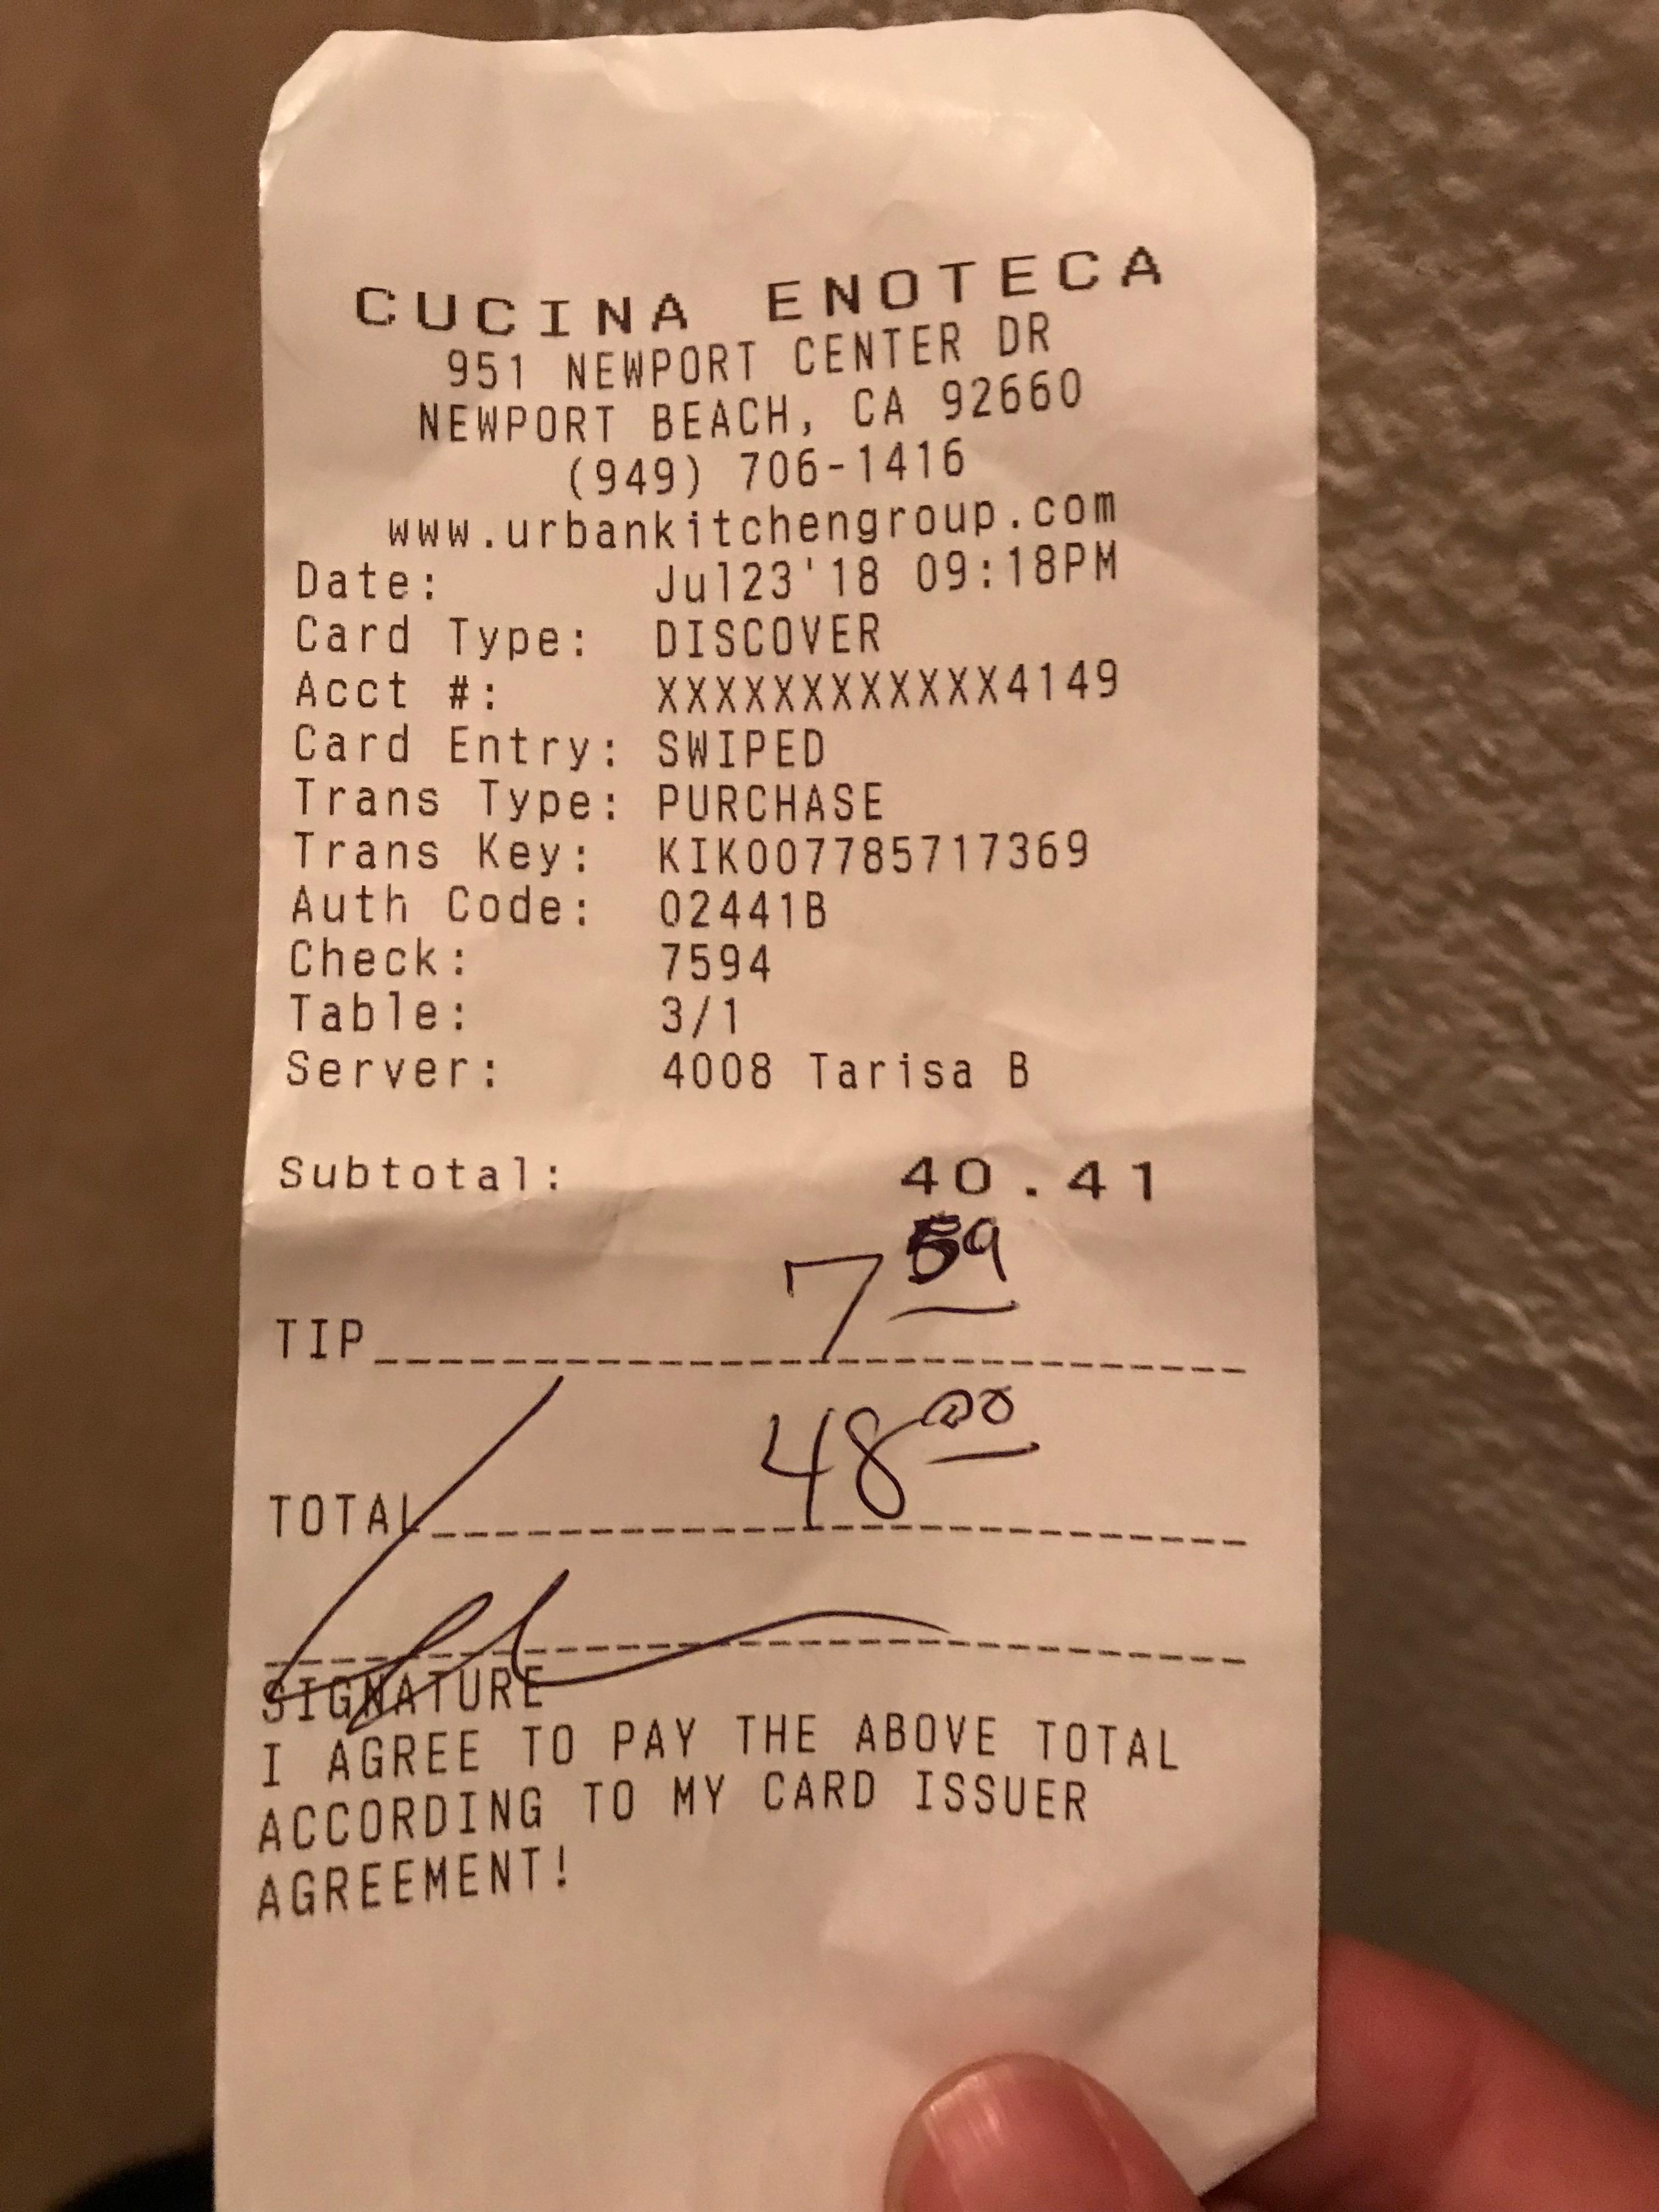 CUCINA ENOTECA
951 NEWPORT CENTER DR
NEWPORT BEACH, CA 92660
(949) 706-1416
www.urbankitchengroup.com
Date: Jul23'18 09:18PM
Card Type: DISCOVER
Acct #: XXXXXXXXXXXX4149
Card Entry: SWIPED
Trans Type: PURCHASE
Trans Key: KIK007785717369
Auth Code: 02441B
Check: 7594
Table: 3/1
Server: 4008 Tarisa B
Subtotal: 40.41
TIP 7 59
TOTAL 48 00
SIGNATURE
I AGREE TO PAY THE ABOVE TOTAL
ACCORDING TO MY CARD ISSUER
AGREEMENT!